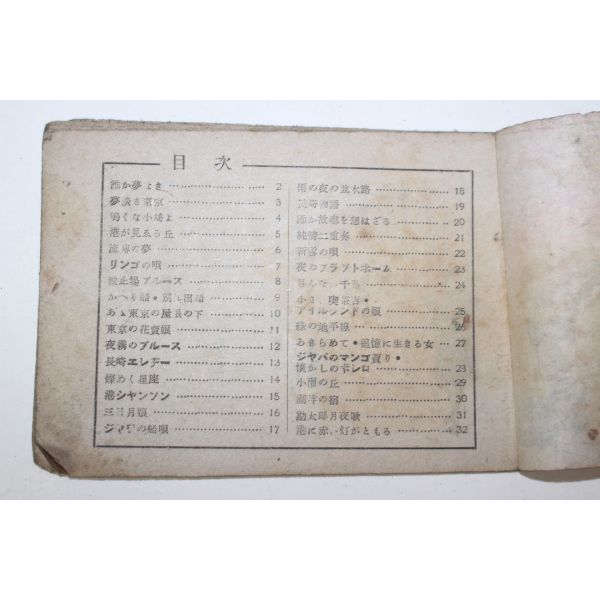 目次
誰か夢よき……2
夢淡き東京……3
啼くな小鳩よ……4
港が見える丘……5
流星の夢……6
リンゴの唄……7
波止場ブルース……8
かへり船・別れ出船……9
あゝ東京の屋根の下……10
東京の花賣娘……11
夜霧のブルース……12
長崎エレヂー……13
煌めく星座……14
港シャンソン……15
三日月娘……16
ジャワの船唄……17
雨の夜の並木路……18
長崎物語……19
誰か故鄕を想はざる……20
純情二重奏……21
新雪の唄……22
夜のプラットホーム……23
千鳥……24
小さい喫茶店・
アイルランドの娘……25
綠の地平線……26
あきらめて・追憶に生きる女……27
ジャバのマンゴ賣り・
懐かしのボレロ……28
小雨の丘……29
湖畔の宿……30
勘太郎月夜歌……31
港に赤い灯がともる……32